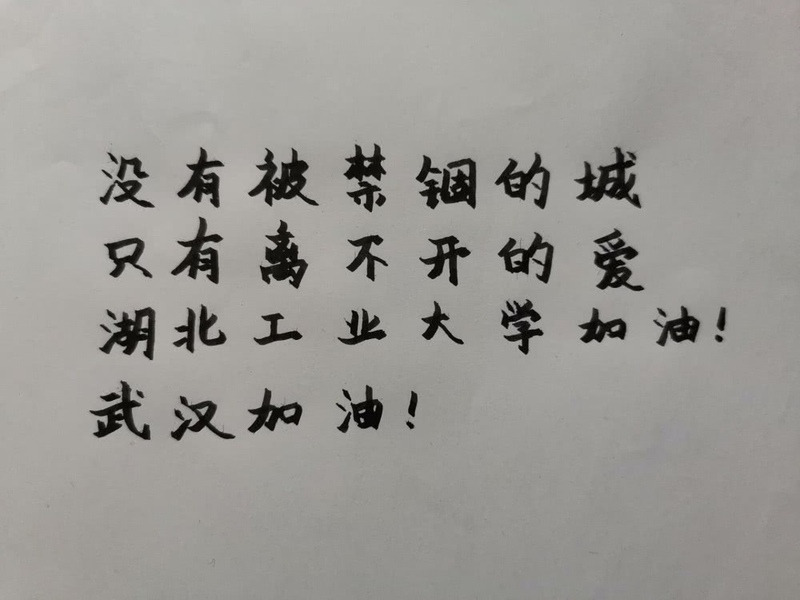 没有被禁锢的城
只有离不开的爱
湖北工业大学加油！
武汉加油！